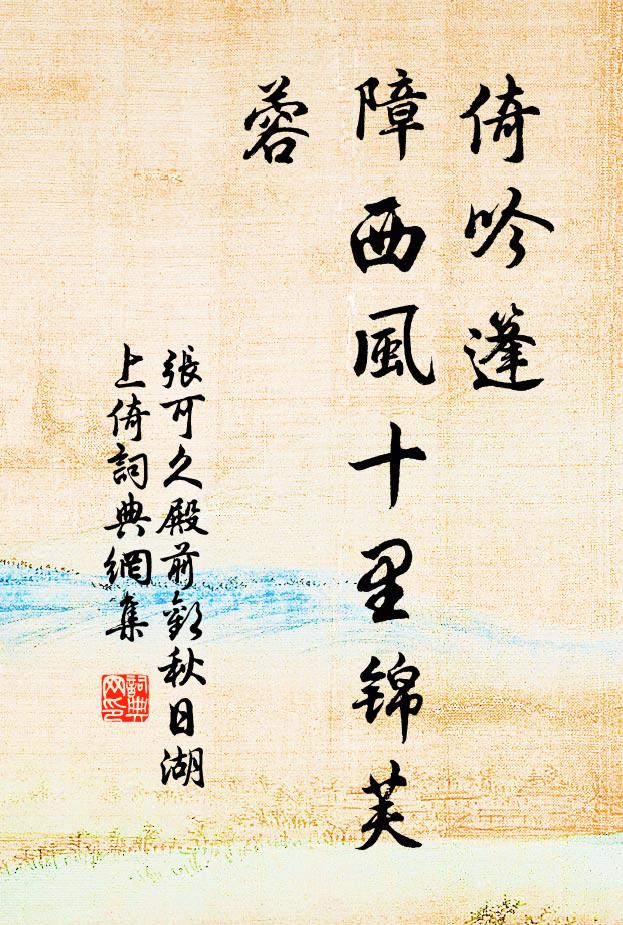 倚吟蓬
障西風十里锦芙
蓉
張可久殿前歡秋日湖
上倚詞典網集
詞典
网印